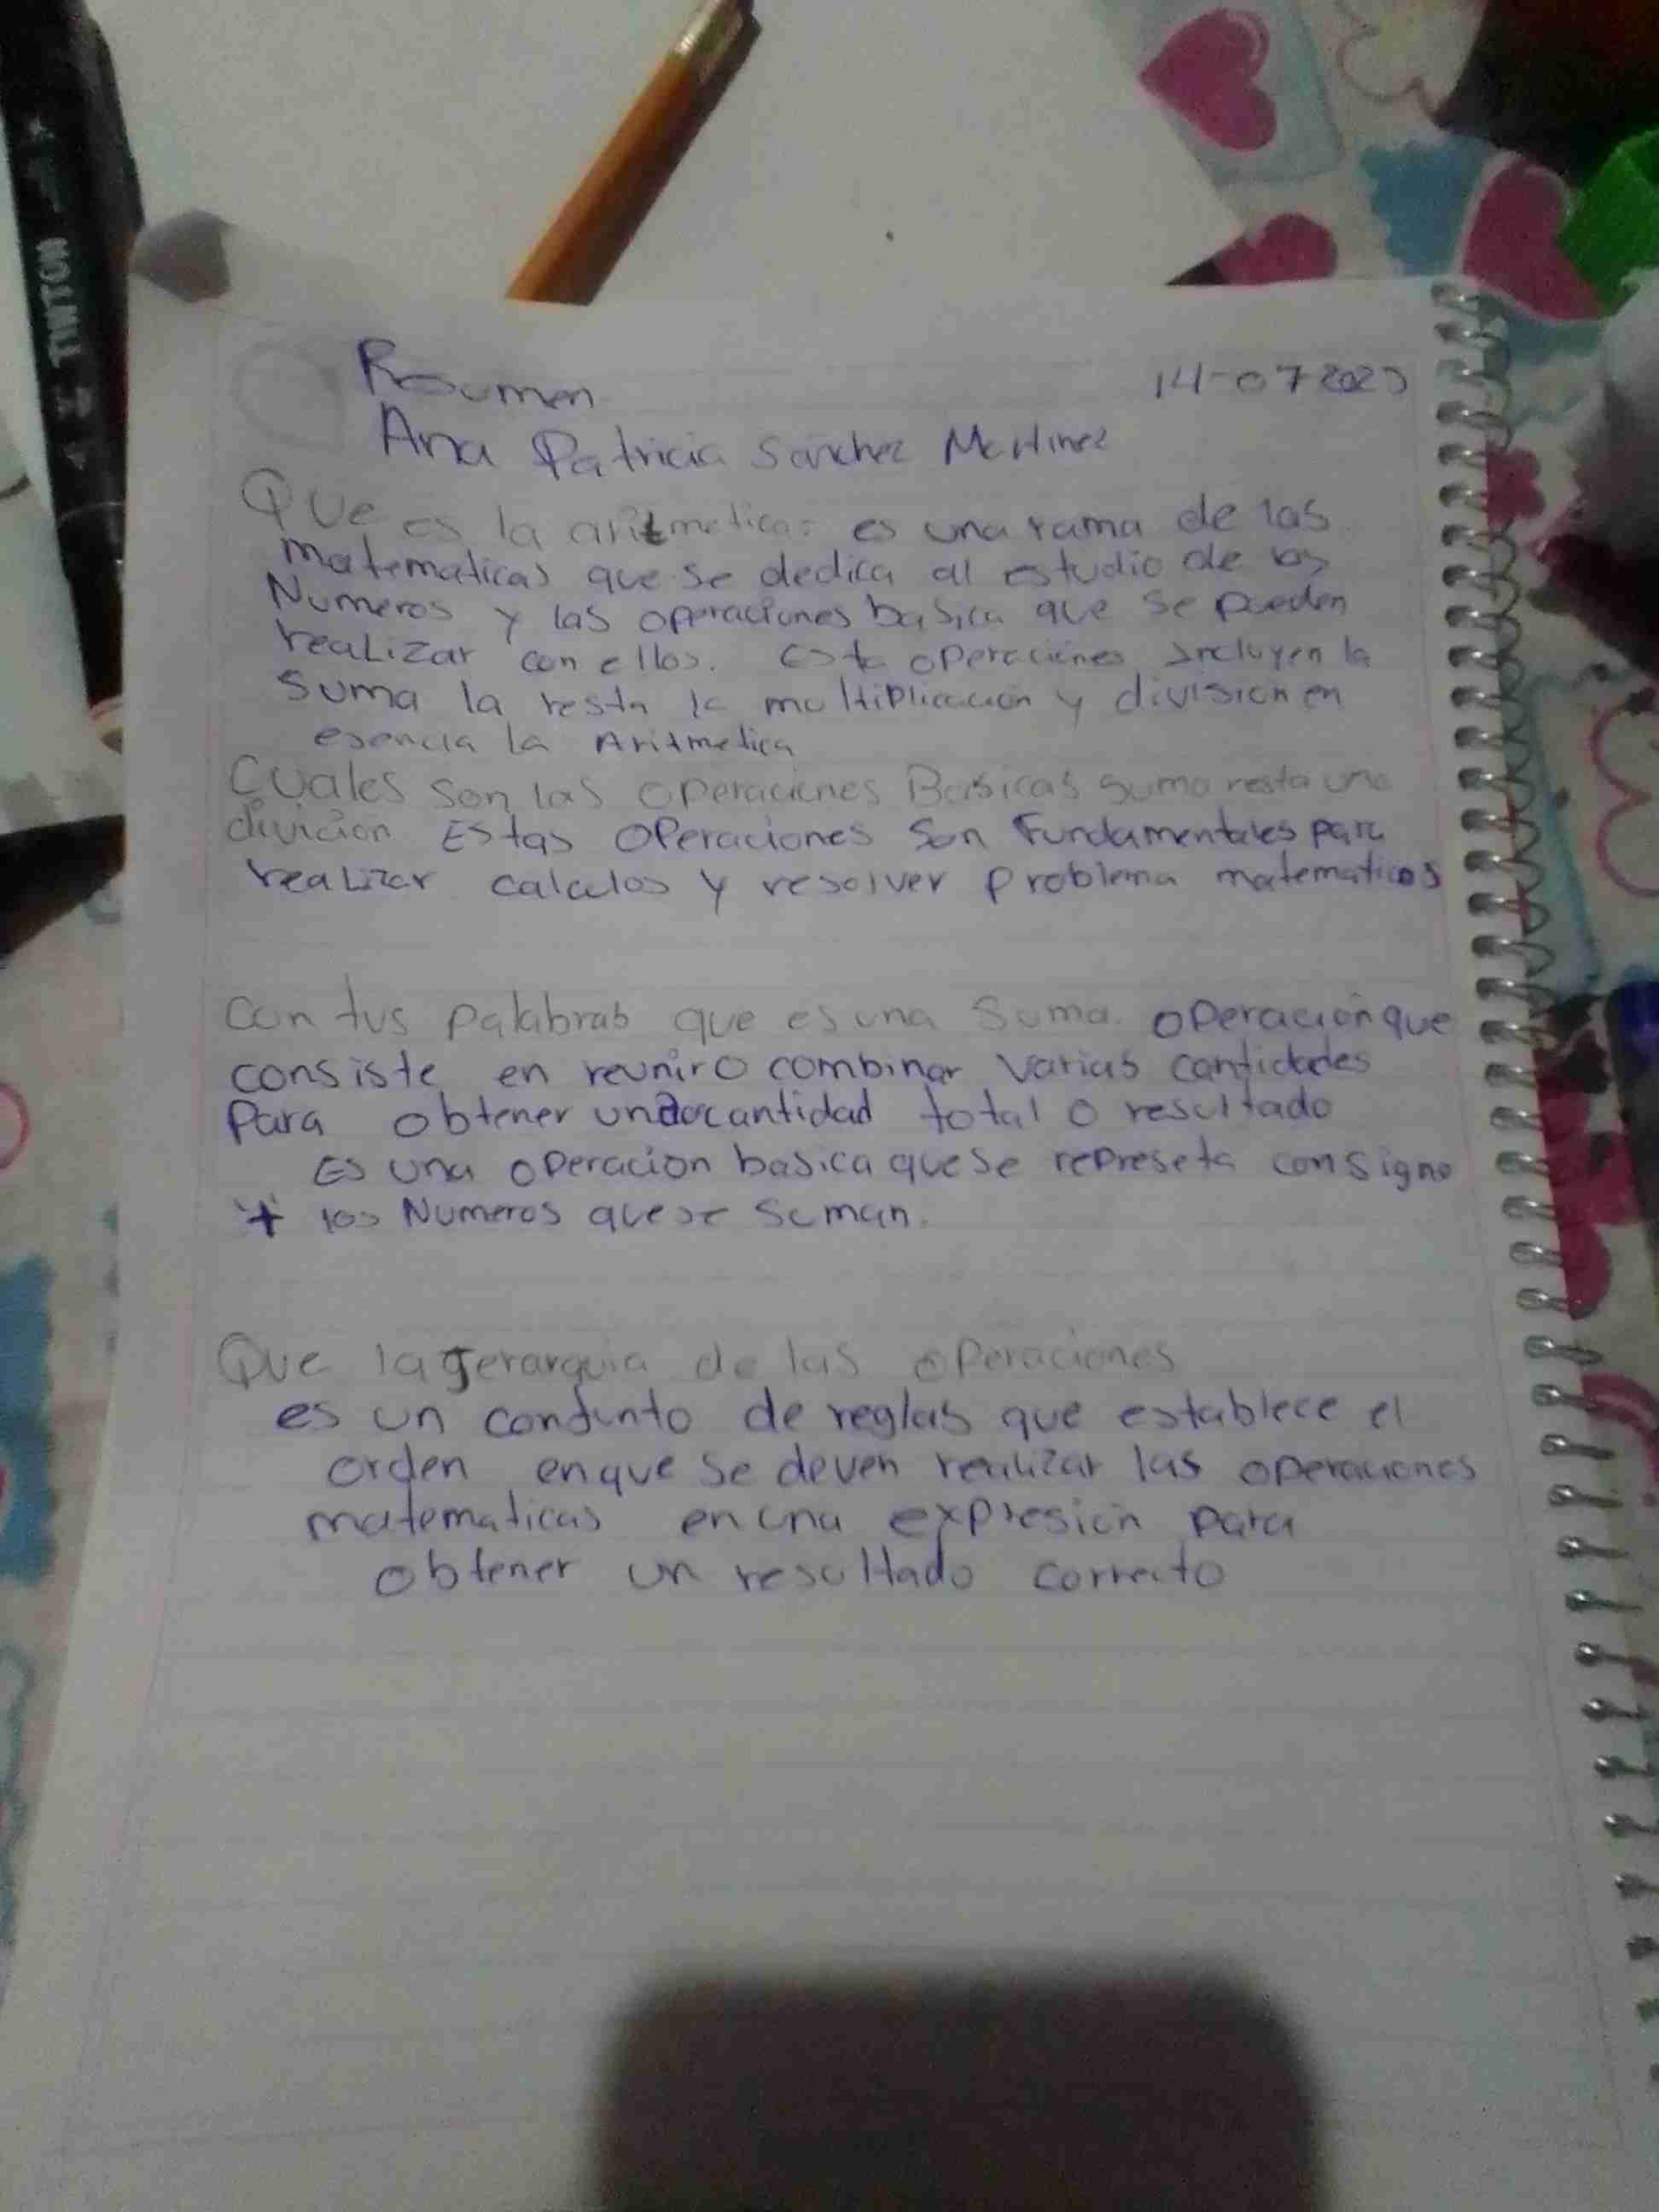 TINTON
Resumen
14-07 2025
Ana Patricia Sanchez Martinez
Que es la aritmetica: es una rama de las
matematicas que se dedica al estudio de los
Numeros y las operaciones basica que se pueden
realizar con ellos. Esta operaciones Incluyen la
suma la resta la multiplicación y división en
esencia la Aritmetica
Cuales son las operaciones Basicas suma resta una
división Estas operaciones son Fundamentales para
realizar calculos y resolver problema matematicos
Con tus palabras que es una suma. operación que
consiste en reunir o combinar varias cantidades
Para obtener una cantidad total o resultado
Es una operación basica que se represeta con signo
+ los Numeros que se suman.
Que la gerarquia de las operaciones
es un conjunto de reglas que establece el
orden en que se deven realizar las operaciones
matematicas en una expresión para
obtener un resultado correcto